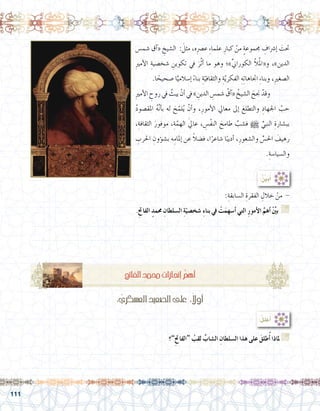 تحت إشراف مجموعة منْ كبار علماء عصره، مثل: الشيخ «آق شمس
الدين»، و«الملّا الكوراني»؛ وهو ما أثّر في تكوين شخصية الأمير
الصغير، وبناء اتجاهاته الفكريّة والثقافيّة بناءً إسلاميًّا صحيحًا.
وقدْ نجح الشيخُ «آق شمس الدين» في أنْ يبثَّ في روح الأمير
حبَّ الجهادِ والتطلعَ إلى معالي الأمور، وأنْ يُلمّحَ له بأنَّه المقصودُ
ببشارة النبيّ ﷺ فشبَّ طامحَ النفْسِ، عاليَ الهمّة، موفورَ الثقافة،
رهيفَ الحسِّ والشعور، أديبًا شاعرًا، فضلًا عن إلمامِه بشؤون الحرب
والسياسة.
أُبيّنُ
- منْ خلالِ الفقرة السابقة:
بيّنْ أهمَّ الأمورِ التي أسهمتْ في بناء شخصيّة السلطان محمدٍ الفاتحِ.
أهمُّ إنجازاتِ محمد الفاتح
أولًا: على الصعيد العسكريّ:
لماذا أُطلقَ على هذا السلطان الشابِّ لقبُ "الفاتح"؟
111